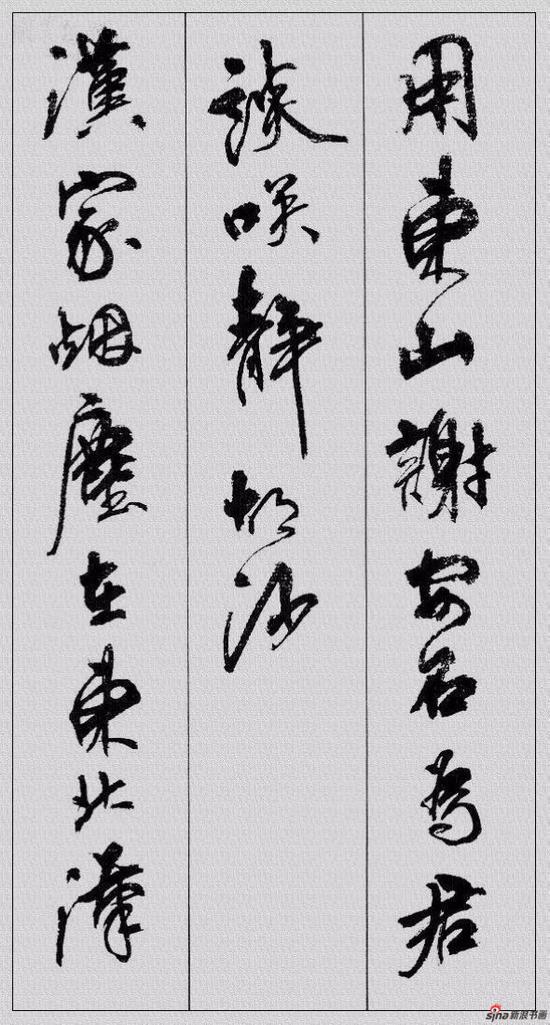 用東山謝安石為君
談咲靜胡沙
漢家烟塵在東北漢
sina新浪书画